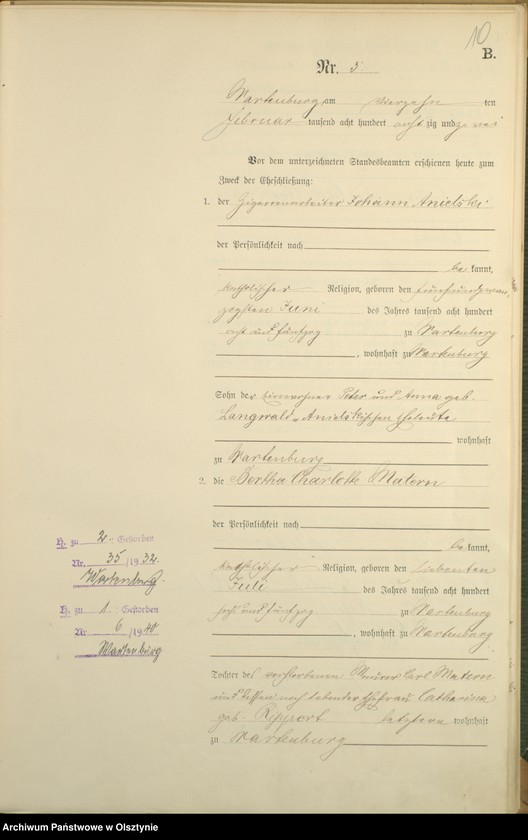 10
B.
Nr. 5
Wartenburg am vierzehn ten
Februar tausend acht hundert acht zig und zwei
Vor dem unterzeichneten Standesbeamten erschienen heute zum
Zweck der Eheschließung:
1. der Zigarrenarbeiter Johann Anielski
der Persönlichkeit nach
be kannt,
katholischer Religion, geboren den fünfundzwan
zigsten Juni des Jahres tausend acht hundert
acht und fünfzig zu Wartenburg
, wohnhaft zu Wartenburg
Sohn der Einwohner Peter und Anna geb.
Langwald - Anielskischen Eheleute
wohnhaft
zu Wartenburg
2. die Bertha Charlotte Matern
der Persönlichkeit nach
be kannt,
katholischer Religion, geboren den siebenten
Juli des Jahres tausend acht hundert
sechs und fünfzig zu Wartenburg
, wohnhaft zu Wartenburg
Tochter des verstorbenen Maurer Carl Matern
und dessen noch lebender Ehefrau Catharina
geb. letztere wohnhaft
zu Wartenburg
H. zu 2. Gestorben
Nr. 35 /1932
Wartenburg
H. zu 1. Gestorben
Nr. 6 /1940
Wartenburg
Archiwum Państwowe w Olsztynie